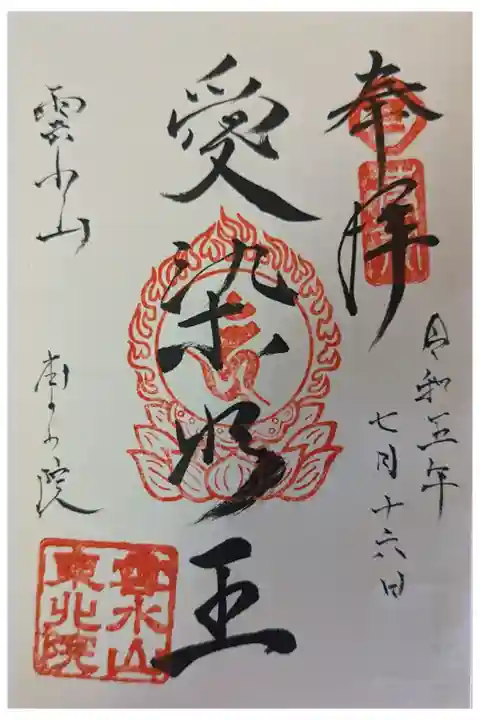 奉拝
令和五年
七月十六日
愛染明王
雲水山
東北院
雲水山
東北院